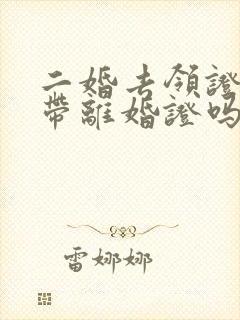 二婚去領證
帶離婚證嗎
雷娜娜